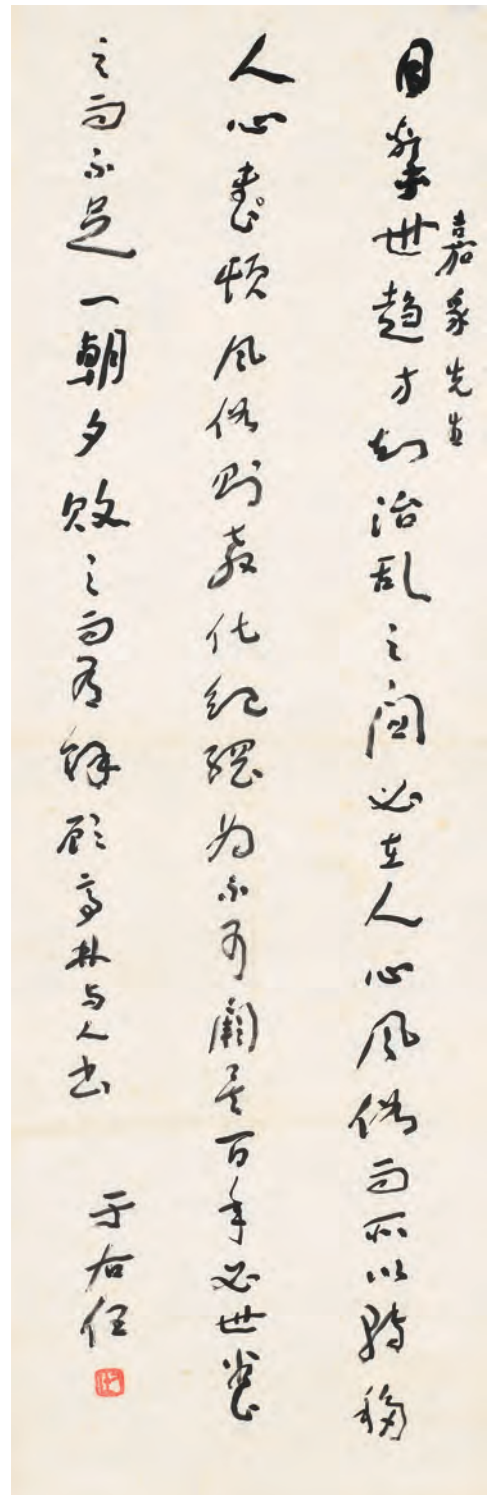 嘉 先生
目擊世趨方知治乱之関必在人心風俗而所以轉移
人心整頓風俗則教化紀綱為不可闕矣百年必世養
之而不足一朝夕敗之而有餘顧亭林与人書
于右任